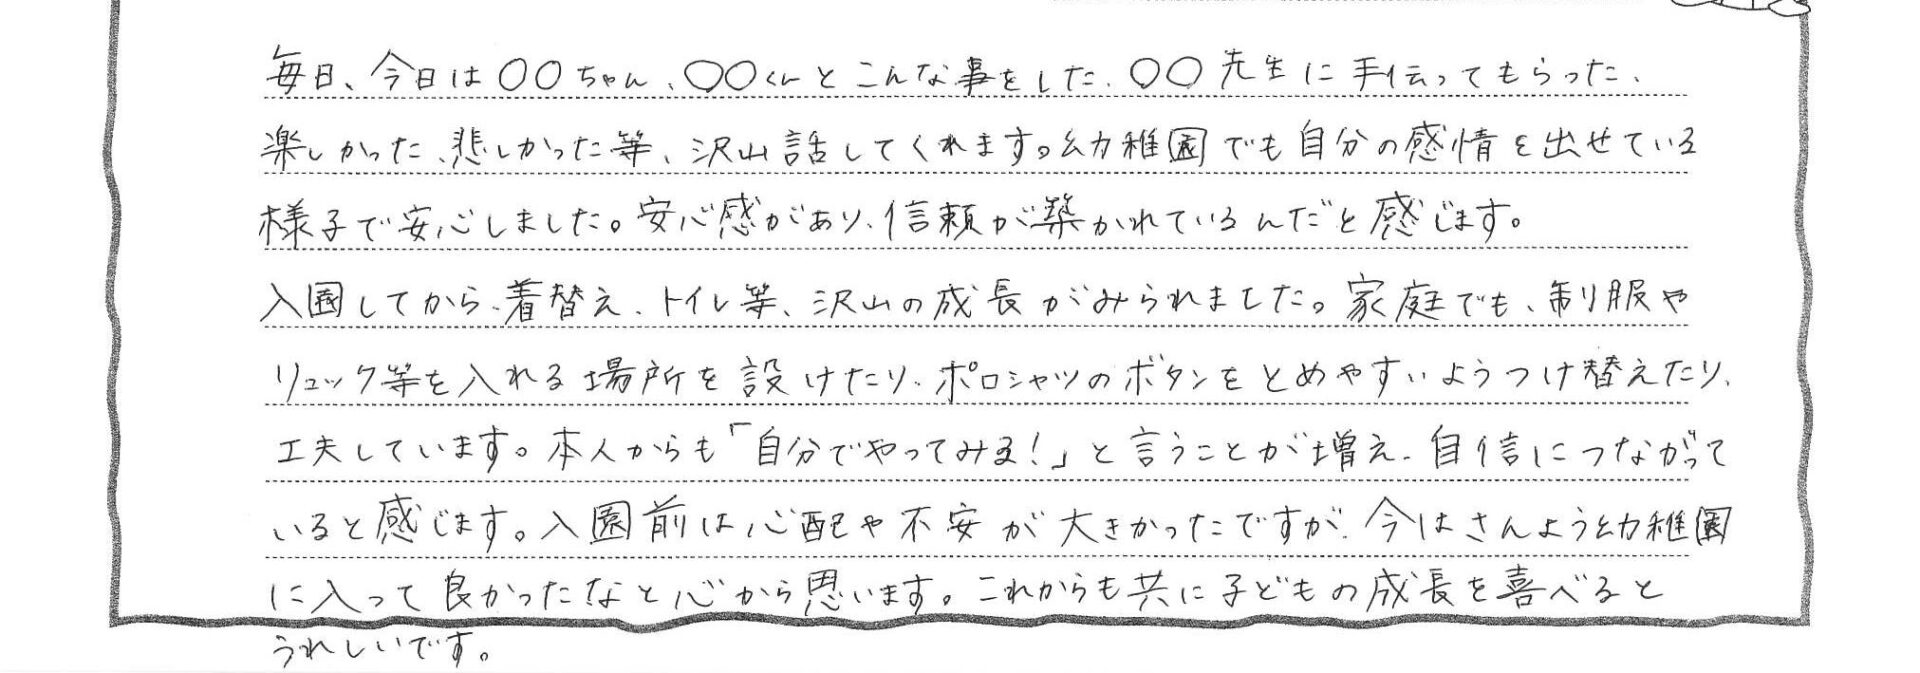 毎日、今日は〇〇ちゃん、〇〇くんとこんな事をした、〇〇先生に手伝ってもらった、
楽しかった、悲しかった等、沢山話してくれます。幼稚園でも自分の感情を出せている
様子で安心しました。安心感があり、信頼が築かれているんだと感じます。
入園してから、着替え、トイレ等、沢山の成長がみられました。家庭でも、制服や
リュック等を入れる場所を設けたり、ポロシャツのボタンをとめやすいようつけ替えたり、
工夫しています。本人からも「自分でやってみる!」と言うことが増え、自信につながって
いると感じます。入園前は心配や不安が大きかったですが、今はさんよう幼稚園
に入って良かったなと心から思います。これからも共に子どもの成長を喜べると
うれしいです。